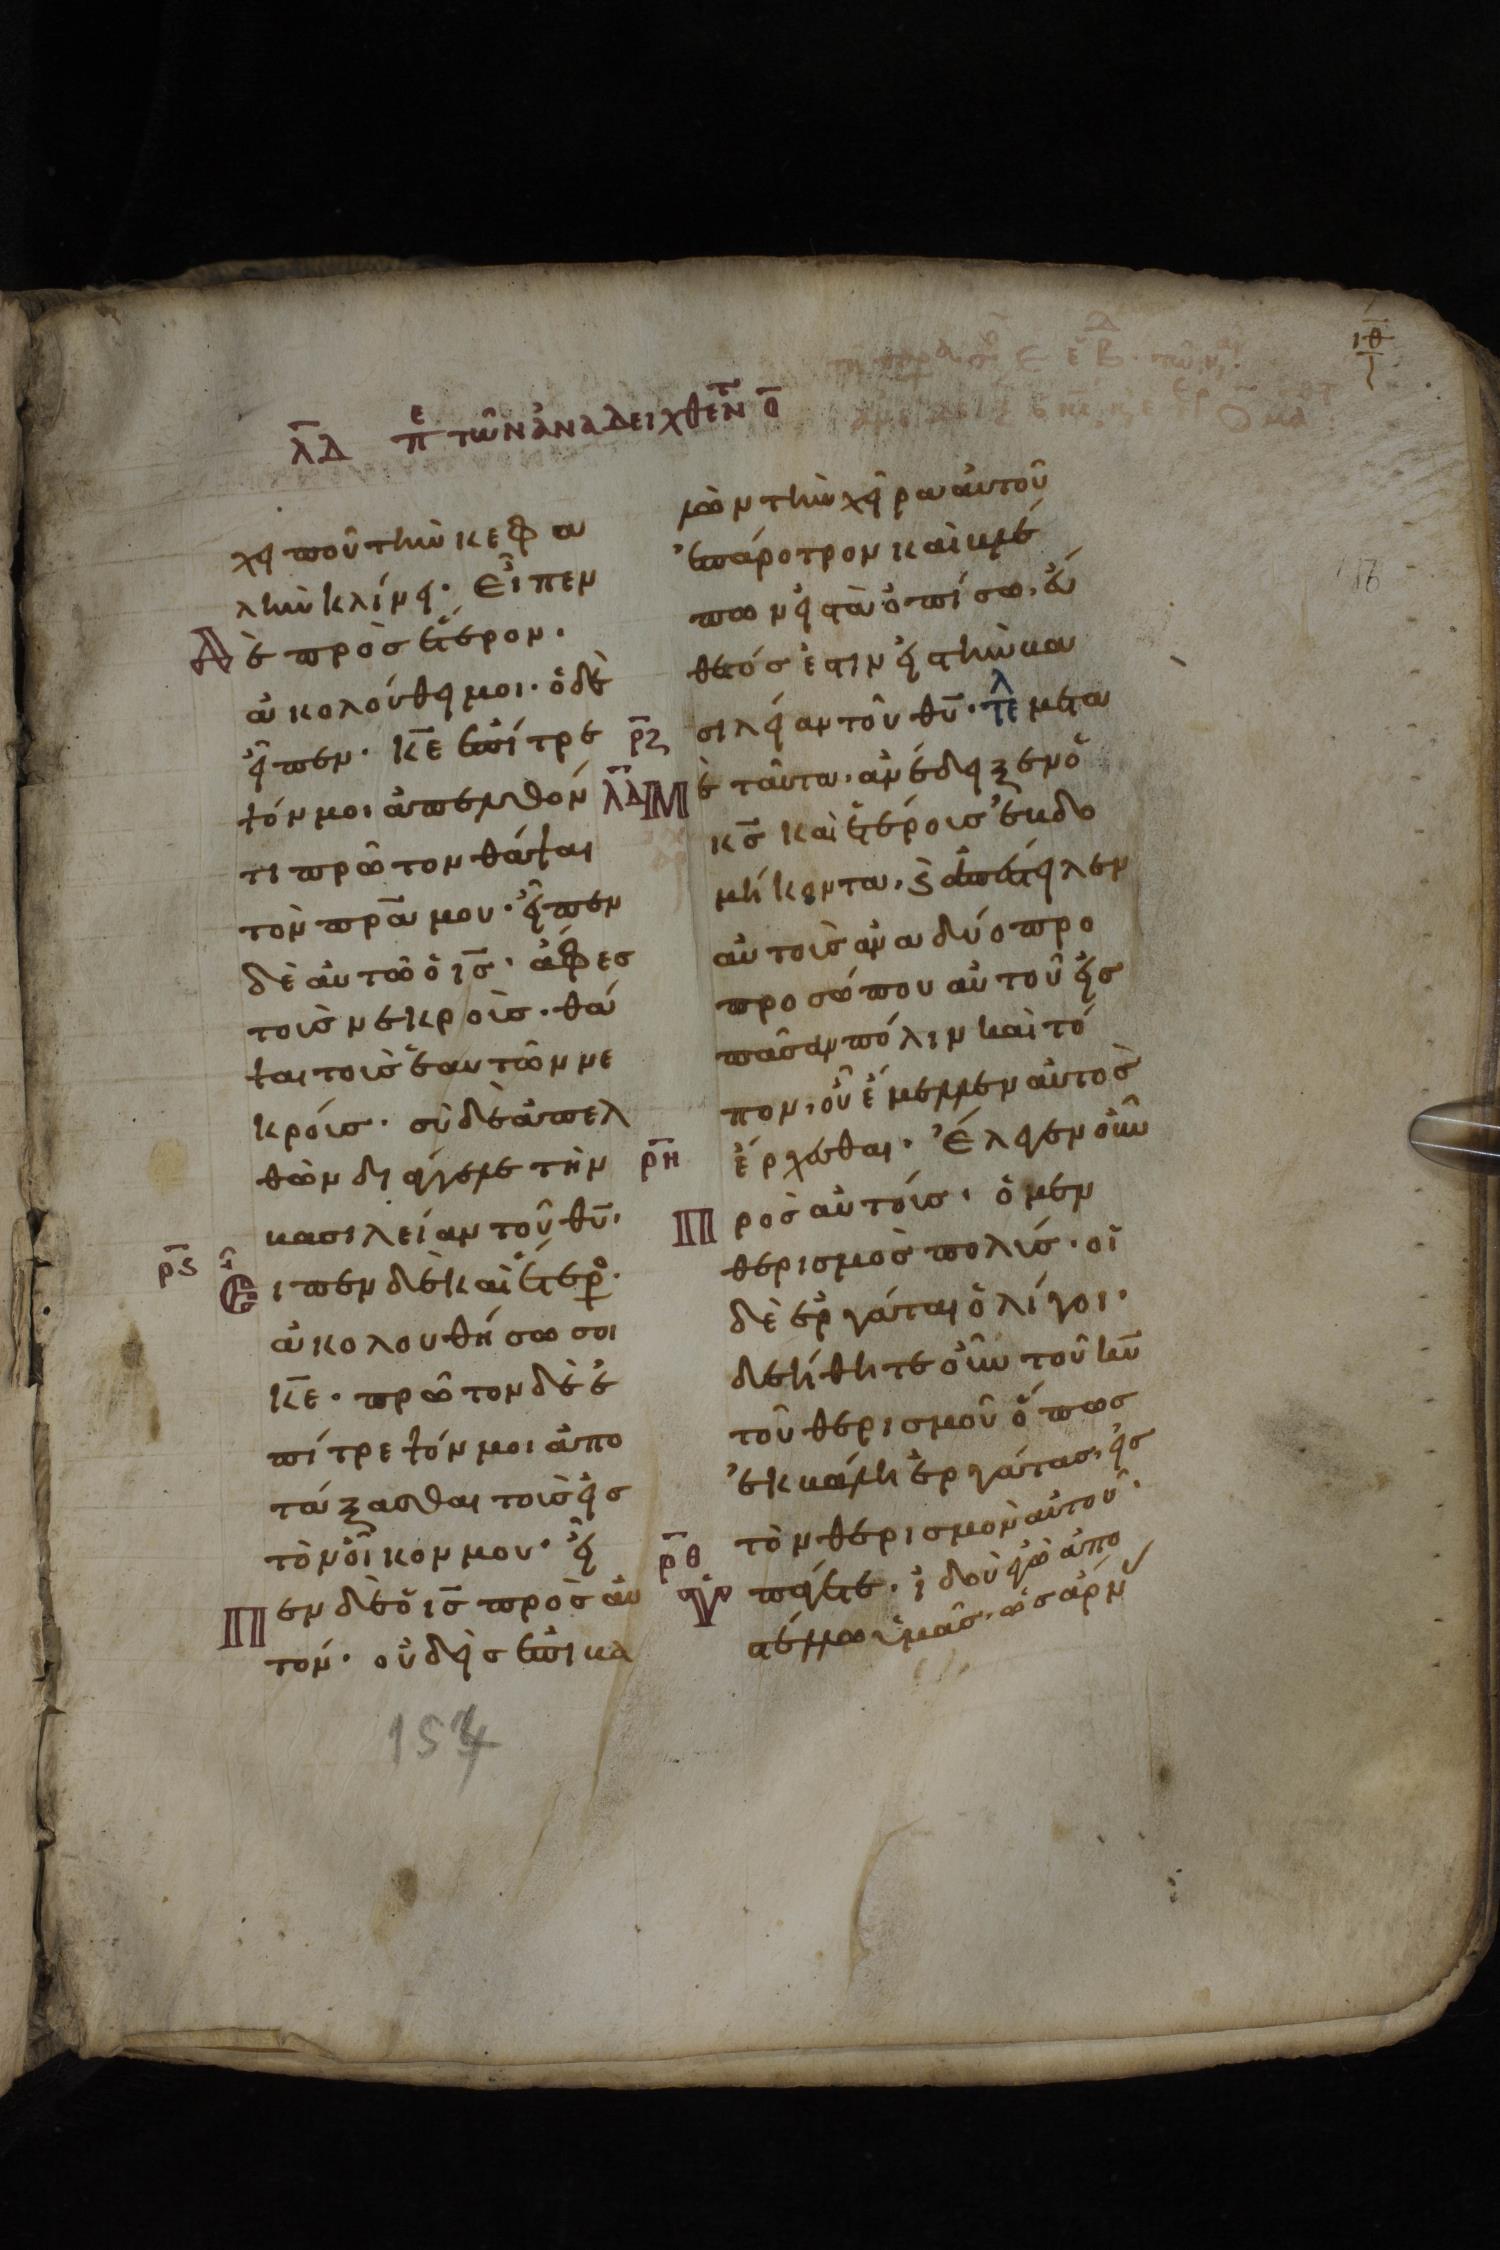 ιθ
λδ πε τῶν ἀναδειχθέντ ο
χει ποῦ τὴν κεφα
λὴν κλίνει· εἶπεν
Δὲ πρὸσ ἕτερον·
ἀκολούθει μοι· ὁ δὲ
εἶπεν· κε ἐπίτρε
ψόν μοι ἀπελθόν
τι πρῶτον θάψαι
τὸν πρα μου· εἶπεν
δὲ αὐτῶ ὁ ισ· ἄφεσ
τοισ νεκροὶσ· θά
ψαι τοισ ἑαυτῶν νε
κρόισ· σὺ δὲ ἀπελ
θὼν διάγγελε τὴν
βασιλείαν τοῦ θυ·
ρϛ Εἶπεν δὲ καὶ ἕτερο·
ἀκολουθήσω σοι
κε· πρῶτον δὲ ἐ
πίτρεψόν μοι ἀπο
τάξασθαι τοισ εἰσ
τὸν οἶκον μου· εἶ
Πεν δὲ ὁ ισ πρὸσ αὐ
τόν· οὐδεὶσ ἐπιβα
λὼν τὴν χεῖρα αὐτοῦ
ἐπάροτρον καὶ βλέ
πων εἰσ τὰ ὀπίσω, εὔ
θετόσ ἐστιν εἰσ τὴν βα
ρζ σιλείαν τοῦ θυ· τελ μετα
λδ Μὲ ταῦτα, ἀνέδειξεν ὁ
κσ καὶ ἑτέροισ ἑβδο
μήκοντα, ϗ ἀπέστειλεν
αὐτοὶσ ἀνα δύο προ
προσώπου αὐτοῦ εἰσ
πᾶσαν πόλιν καὶ τό
πον, οὗ ἔμελλεν αὐτὸσ
ρη ἔρχεσθαι· Ἔλεγεν οὖν
Πρὸσ αὐτόισ· ὁ μὲν
θερισμοὸσ πολύσ· οἱ
δὲ ἐργάται ὀλίγοι·
δεήθητε οὖν τοῦ κυ
τοῦ θερισμοῦ ὅπωσ
ἐκβάλη ἐργάτασ, εἰσ
τὸν θερισμὸν αὐτοῦ·
ρθ Ὑπάγετε· ἰδοὺ ἐγὼ ἀπο
στέλλω ὑμᾶσ, ὡσ ἄρν
154